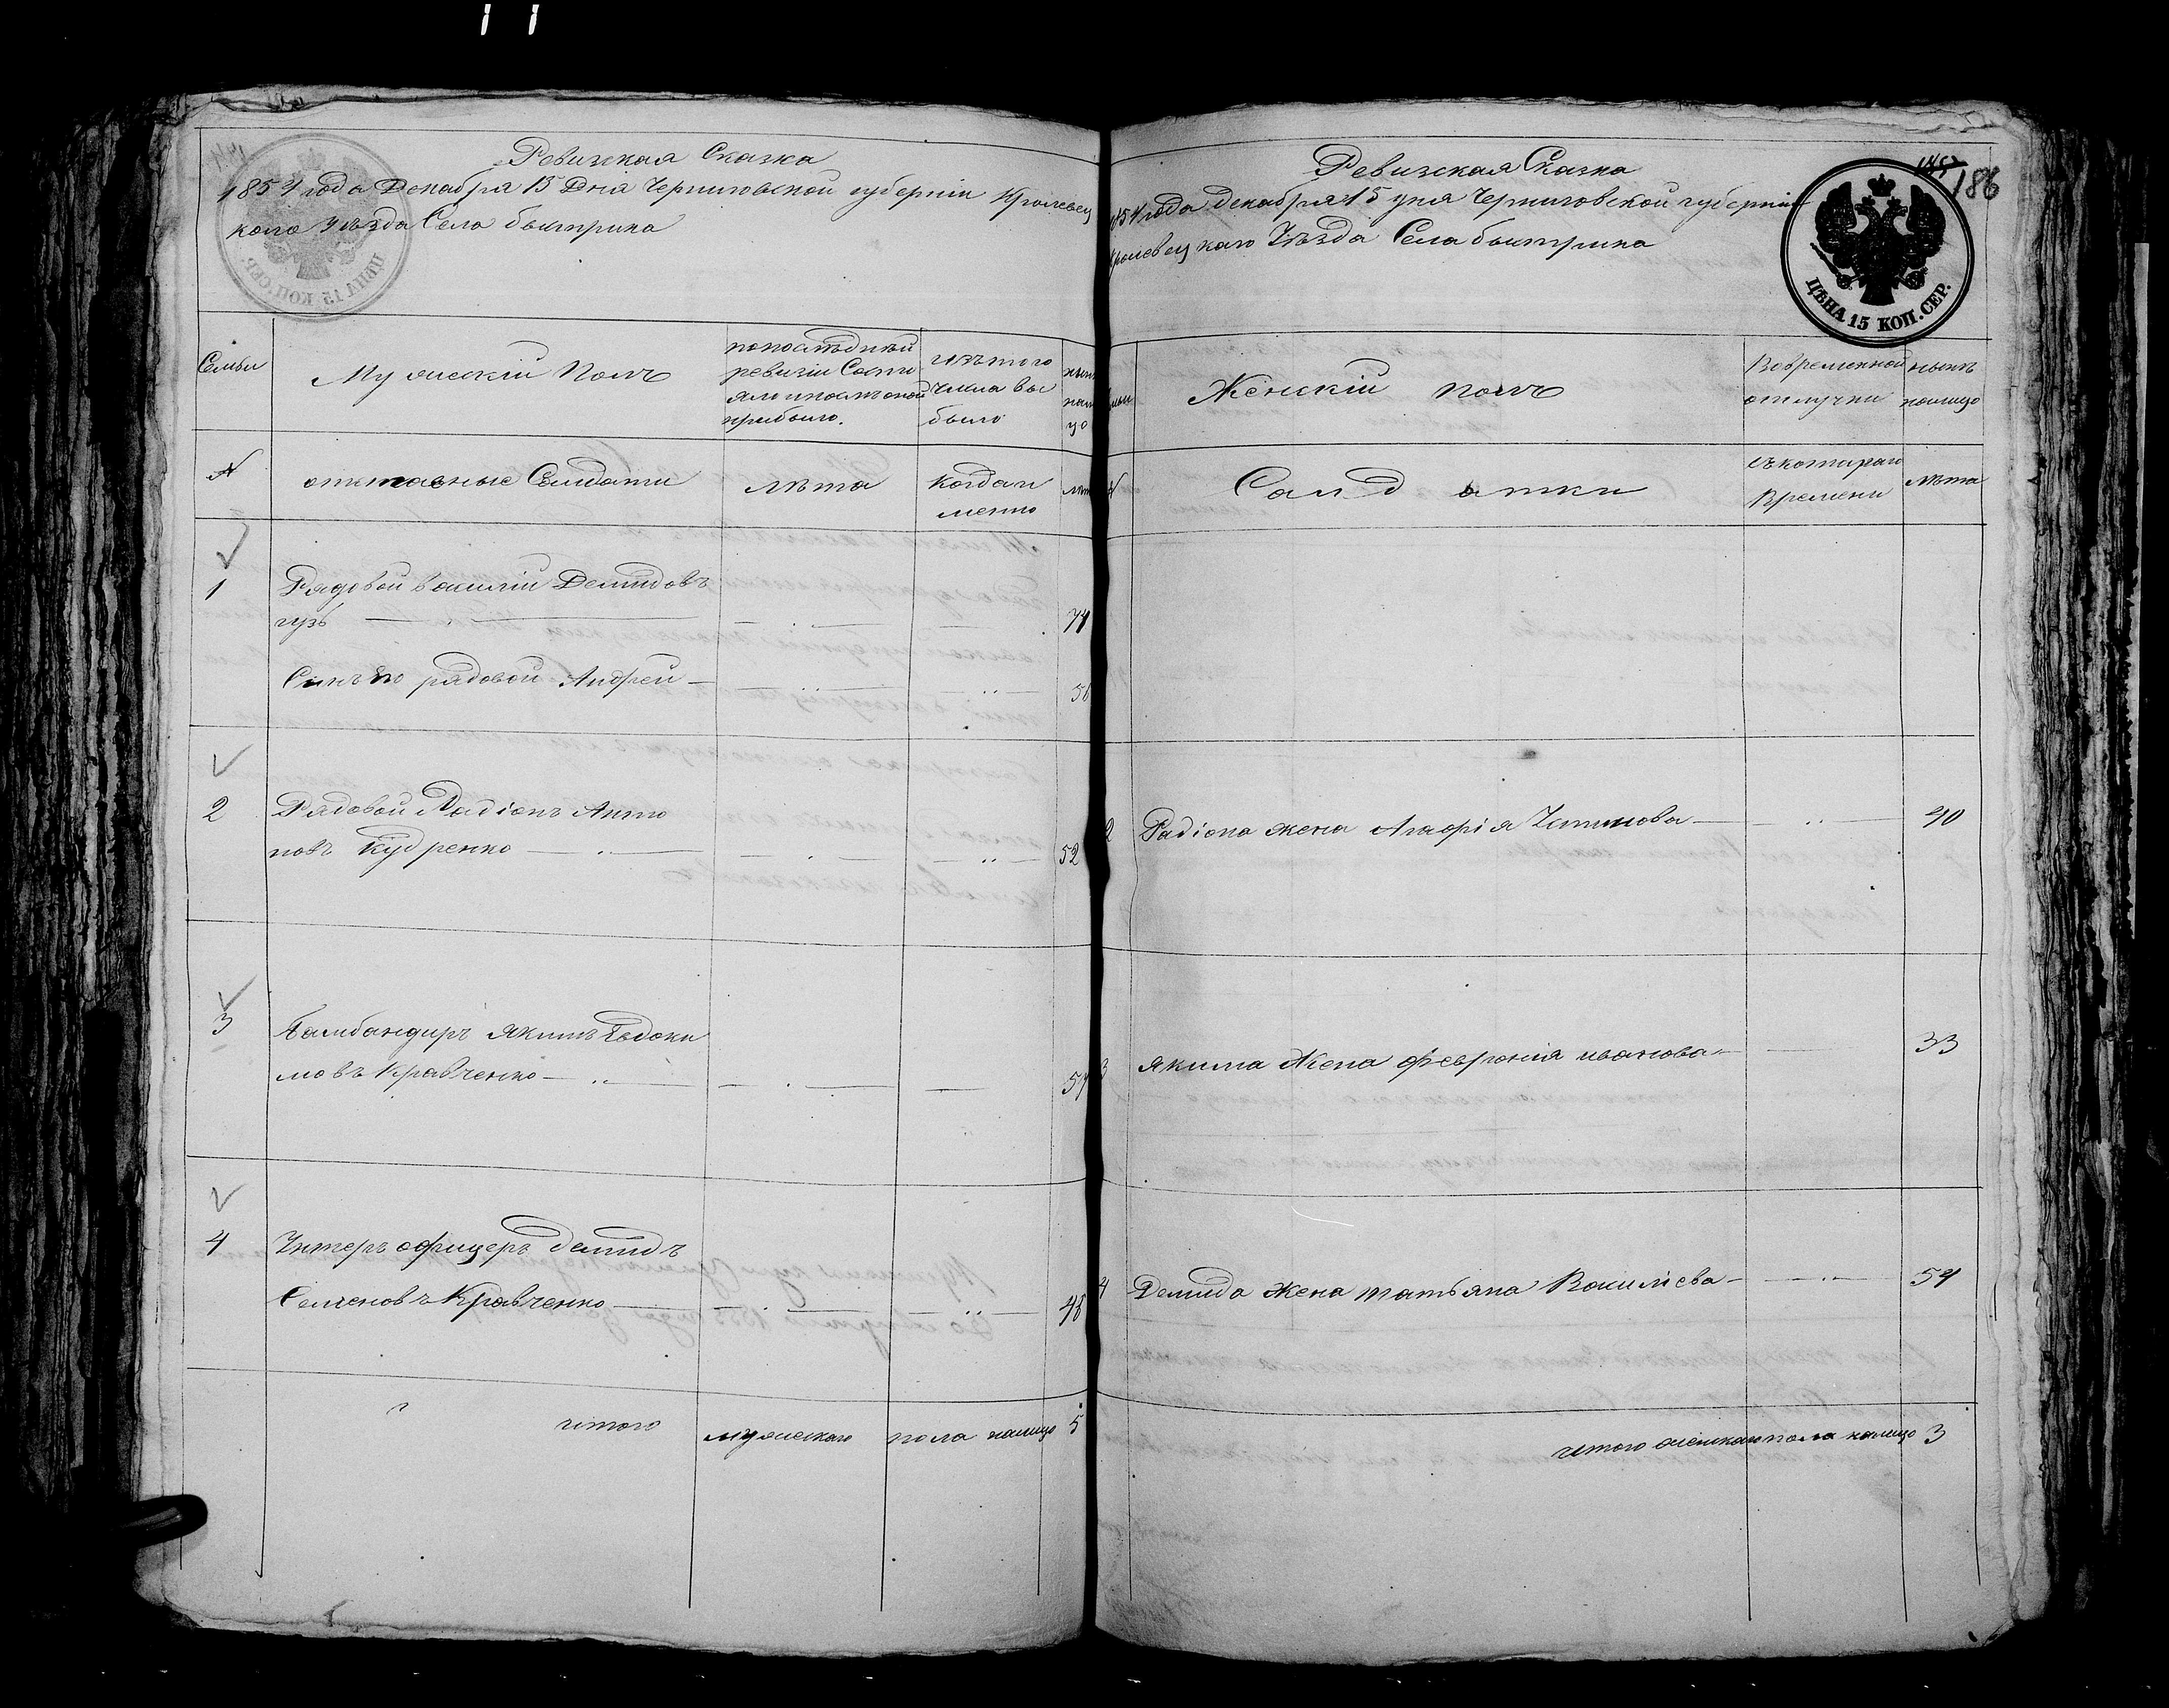 Ревизская Сказка
1854 года Декабря 15 Дня Черниговской губернии Кролевец
кого уъзда Села быстрика
Семьи
Мужеский Полъ
попослѣдней
ревизии Состо
яло ипослѣ оной
прибыло.
изътого
числа вы
было
нынѣ
нали
цо
№
отставные Салдати
лѣта
когда и
менно
лѣта
1
Рядовой василий Демидовъ
гузь
74
Синъ его рядовой Андрей
2
Рядовой Радіонъ Анто
новъ Кудренко
52
3
Бамбандиръ Якимъ Евдоки
мовъ Кравченко
57
4
Унтеръ офицеръ демидъ
Семеновъ Кравченко
48
итого
мужескаго
пола налицо
5
Ревизская Сказка
1854 года декабря 15 дня Черниговской губернии
Кролевецкаго Уѣзда Села быстрика
186
ЦѢНА 15 КОП. СЕР.
Женский полъ
Вовременной
отлучки
нынѣ
налицо
№
Салдатки
съкотораго
Времени
лѣта
2
Радіона жена Агафія
40
3
Якима Жена Февронія иванова
33
4
Демида Жена татьяна Василіева
54
итого женскаго пола налицо 3